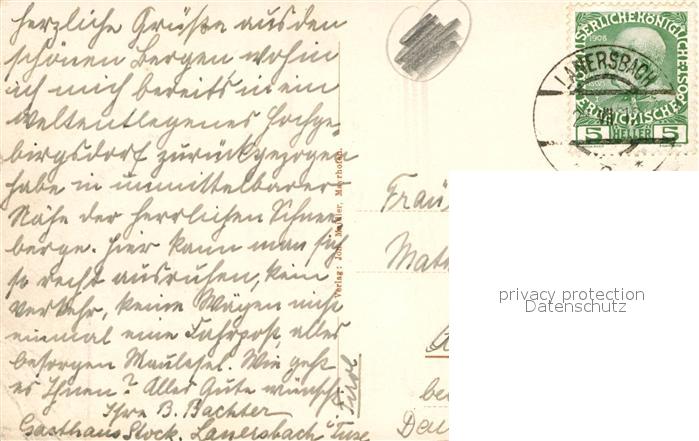 herzliche Grüße aus den
schönen Bergen wohin
ich mich bereits in ein
weltentlegenes Hochge-
birgsdorf zurückgezogen
habe in unmittelbarer
Nähe der herrlichen Schnee-
berge. Hier kann man sich
so recht ausruhen, kein
Verkehr, keine Wägen nicht
einmal eine Fahrpost, alles
besorgen Maulesel. Wie geht
es Ihnen? Alles Gute wünscht
Ihre B. Bachter
Gasthaus Stock, Lanersbach, Tux
Tirol
Verlag: Joh. Moidler, Mayrhofen.
KAISERLICHE KÖNIGLICHE
ÖSTERREICHISCHE POST
1908
5 HELLER 5
LANERSBACH
Fräu
Mat
be
Deu
privacy protection
Datenschutz